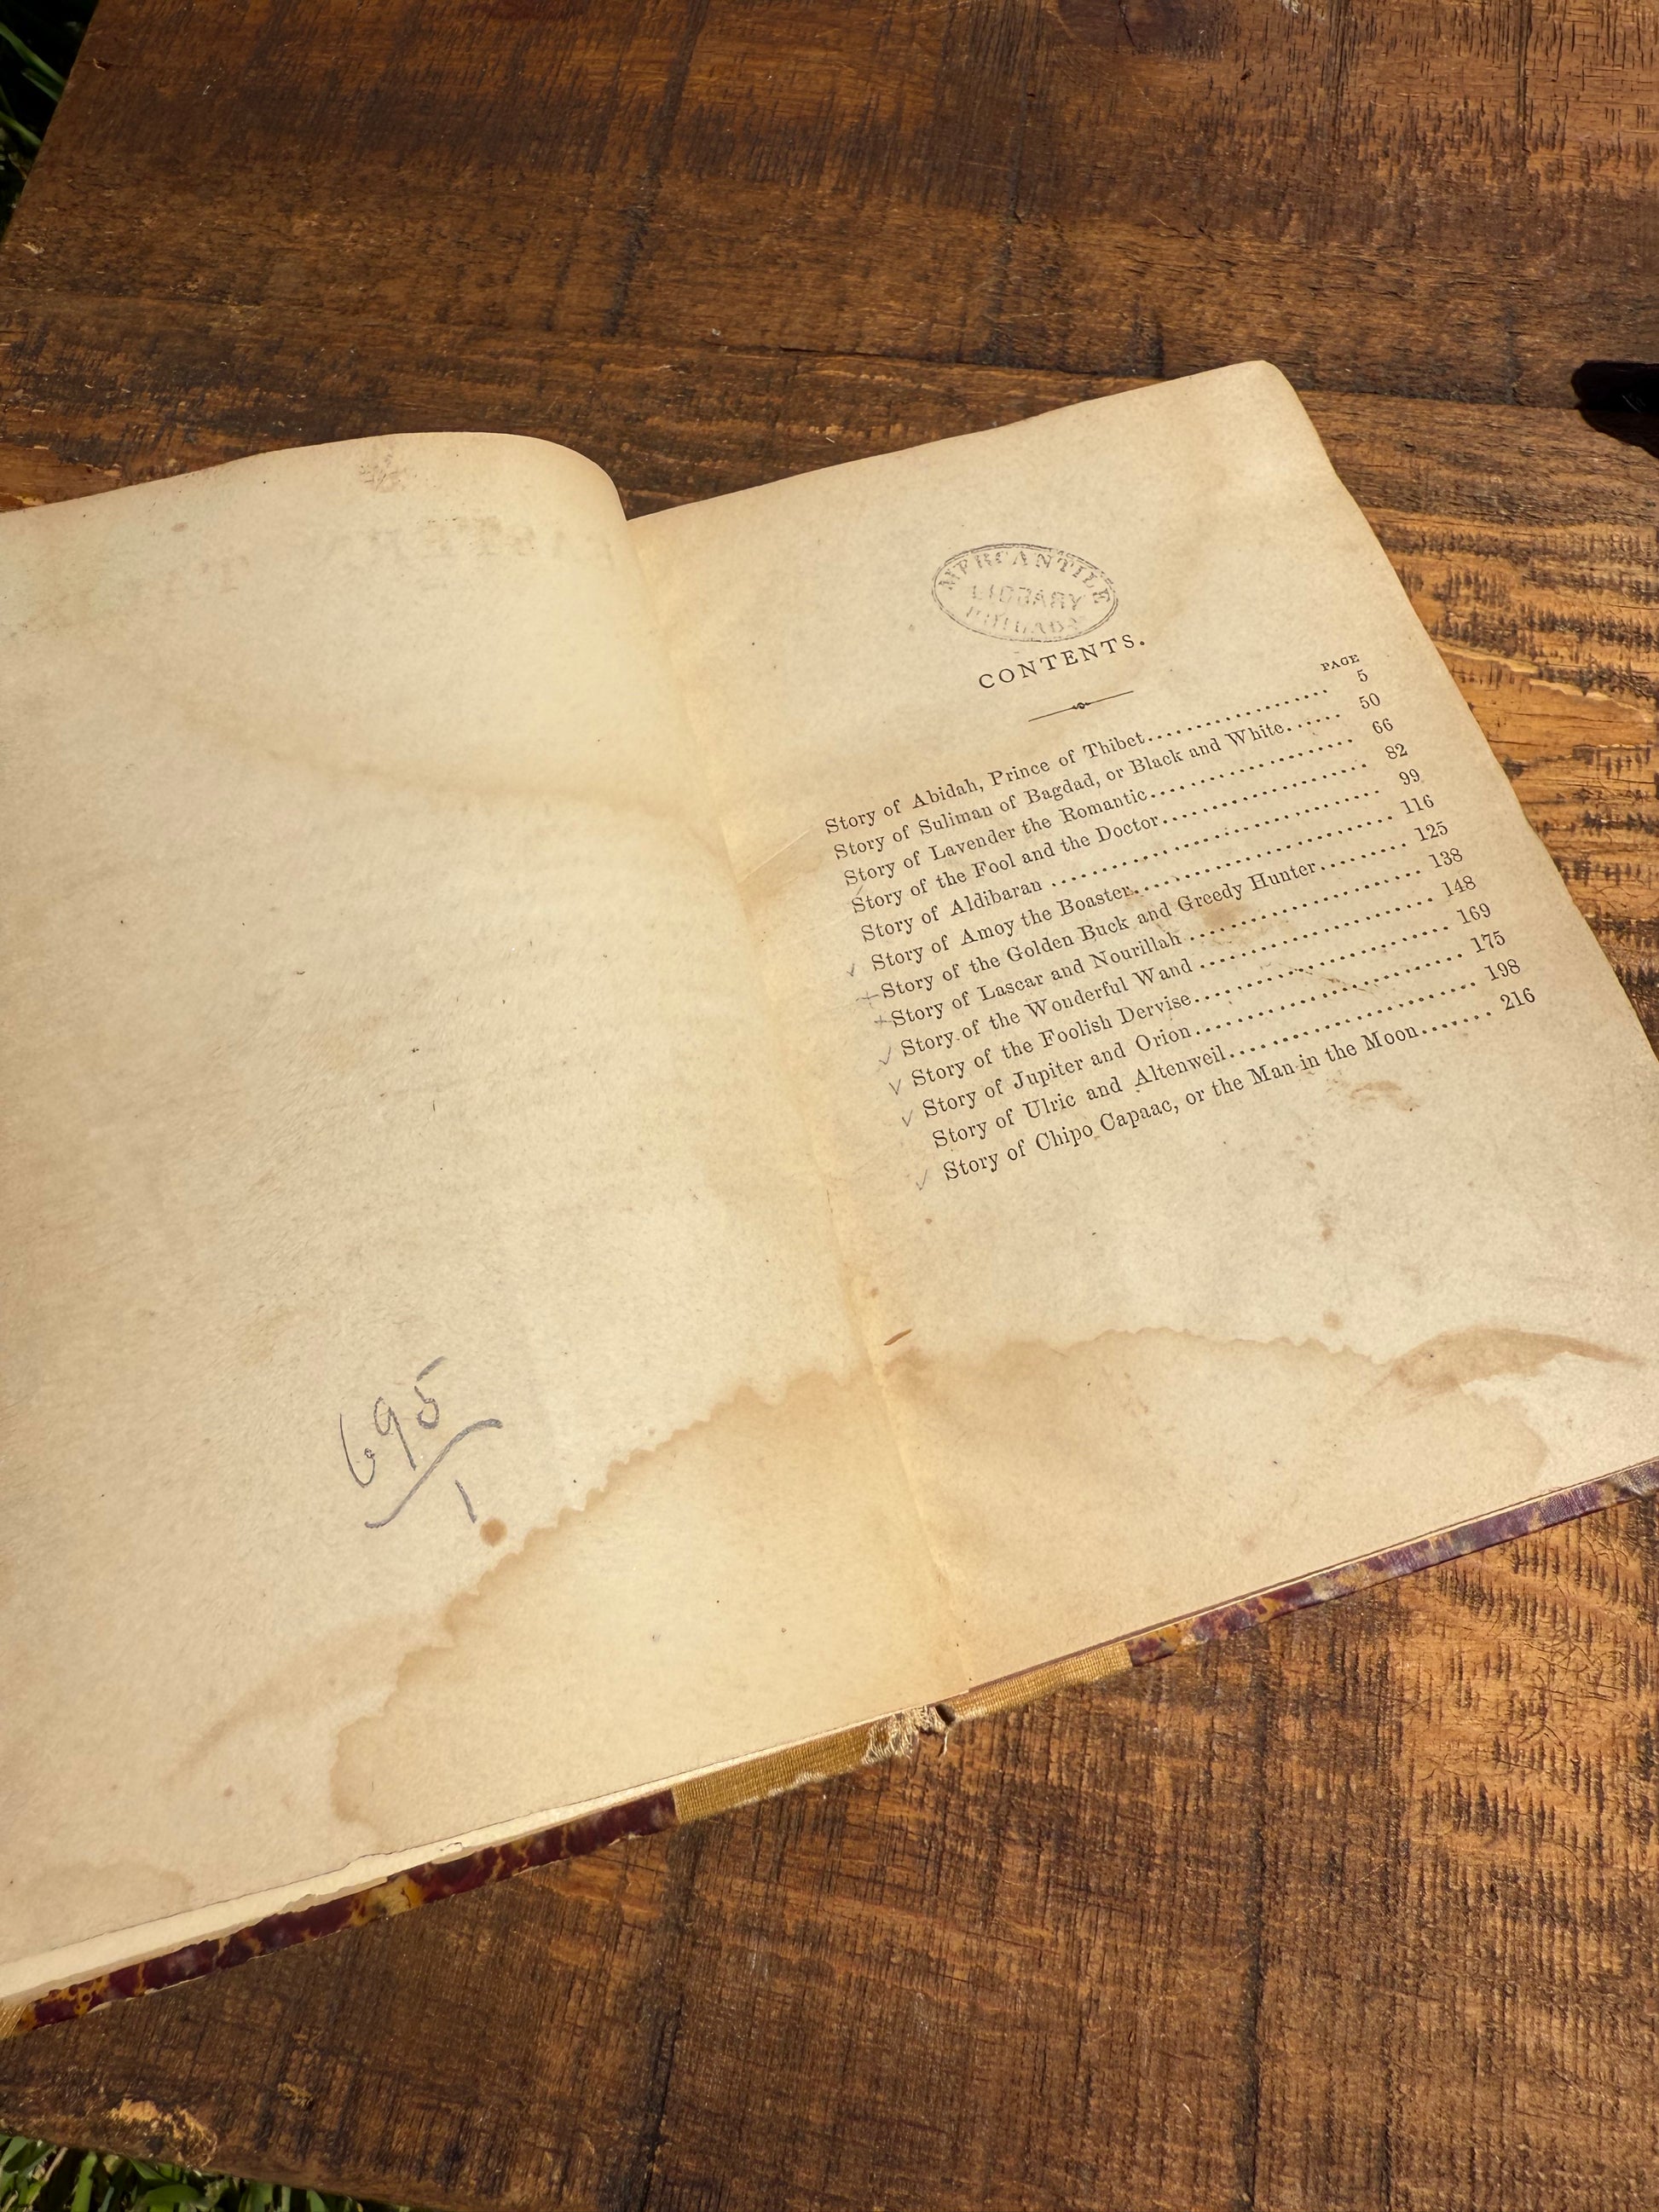 695
1
MERCANTILE
LIBRARY
PHILADA
CONTENTS.
PAGE
Story of Abidah, Prince of Thibet 5
Story of Suliman of Bagdad, or Black and White 50
Story of Lavender the Romantic 66
Story of the Fool and the Doctor 82
Story of Aldibaran 99
Story of Amoy the Boaster 116
Story of the Golden Buck and Greedy Hunter 125
Story of Lascar and Nourillah 138
Story of the Wonderful Wand 148
Story of the Foolish Dervise 169
Story of Jupiter and Orion 175
Story of Ulric and Altenweil 198
Story of Chipo Capaac, or the Man in the Moon 216